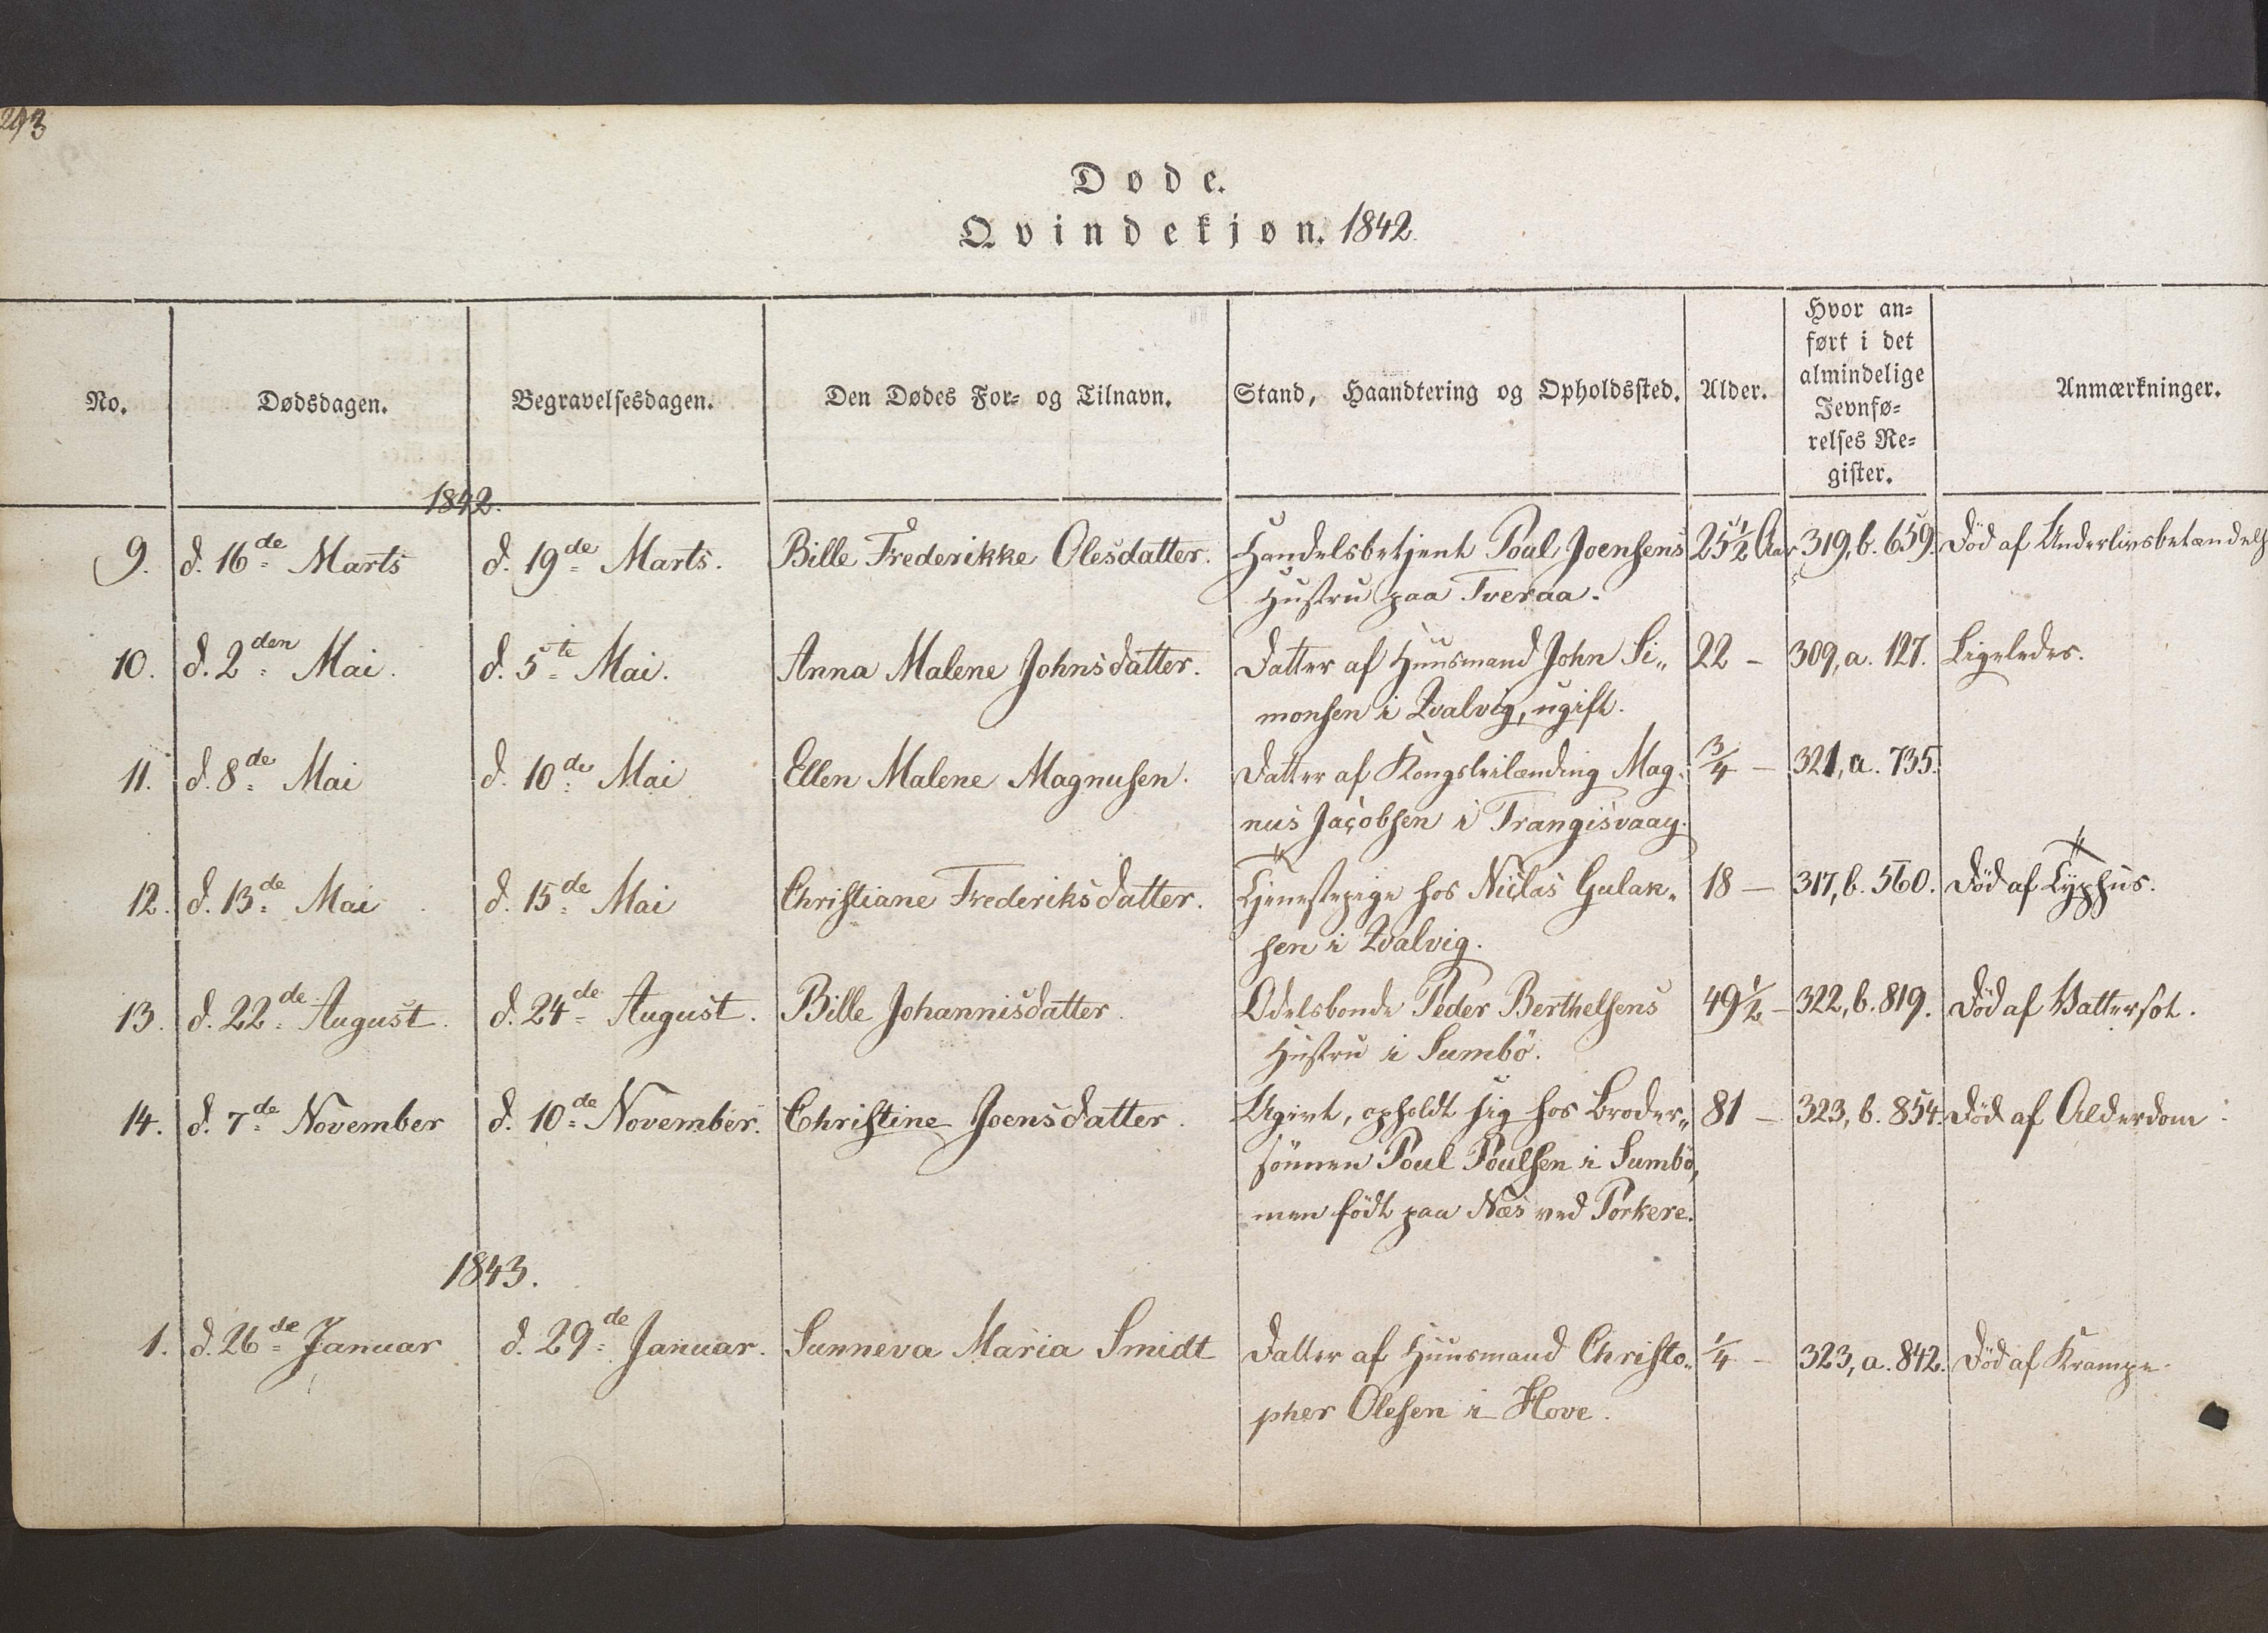 293
Døde.
Qvindekjøn. 1842.
No. Dødsdagen. Begravelsesdagen. Den Dødes For- og Tilnavn. Stand, Haandtering og Opholdssted. Alder. Hvor an-
ført i det
almindelige
Jevnfø-
relses Re-
gister. Anmærkninger.
1842.
9. d. 16de Marts d. 19de Marts. Bille Frederikke Olesdatter. Handelsbetjent Poul Joensens 25 1/2 Aar 319, b. 659. Død af Underlivsbetændels
Hustru paa Tveraa.
10. d. 2den Mai. d. 5te Mai. Anna Malene Johnsdatter. Datter af Huusmand John Si„ 22 – 309, a. 127. Ligeledes.
monsen i Qvalvig, ugift.
11. d. 8de Mai d. 10de Mai Ellen Malene Magnusen. Datter af Kongsleilænding Mag- 3/4 – 321, a. 735.
nus Jacobsen i Trangisvaag.
12. d. 13de Mai d. 15de Mai Christiane Frederiksdatter. Tjenestepige hos Niclas Gulak„ 18 – 317, b. 560. Død af Typhus.
sen i Qvalvig.
13. d. 22de August. d. 24de August. Bille Johannisdatter. Odelsbonde Peder Berthelsens 49 1/2 – 322, b. 819. Død af Vattersot.
Hustru i Sumbö.
14. d. 7de November d. 10de November. Christine Joensdatter. Ugivt, opholdt sig hos Broder„ 81 – 323, b. 854. Død af Alderdom.
sönnen Poul Poulsen i Sumbö,
men födt paa Næs ved Porkere.
1843.
1. d. 26de Januar d. 29de Januar. Sunneva Maria Smidt Datter af Huusmand Christo„ 1/4 – 323, a. 842. Död af Krampe.
pher Olesen i Hove.